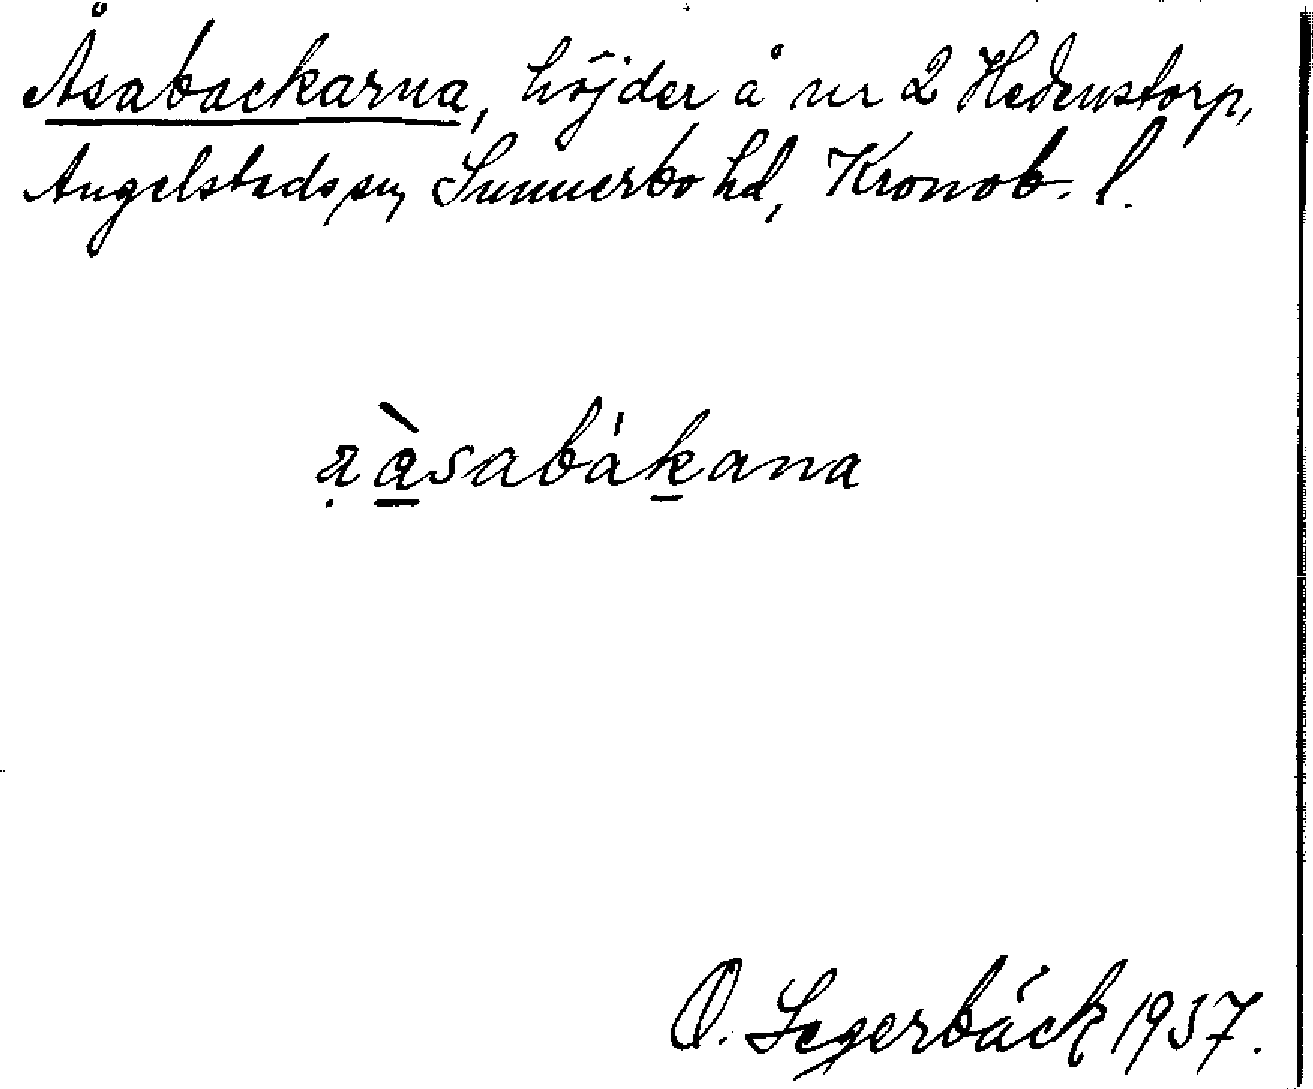 Åsabackarna, höjder å nr 2 Hedenstorp,
Angelstads sn, Sunnerbo hd, Kronob. l.
à̠sabákana
O. Segerbäck 1937.